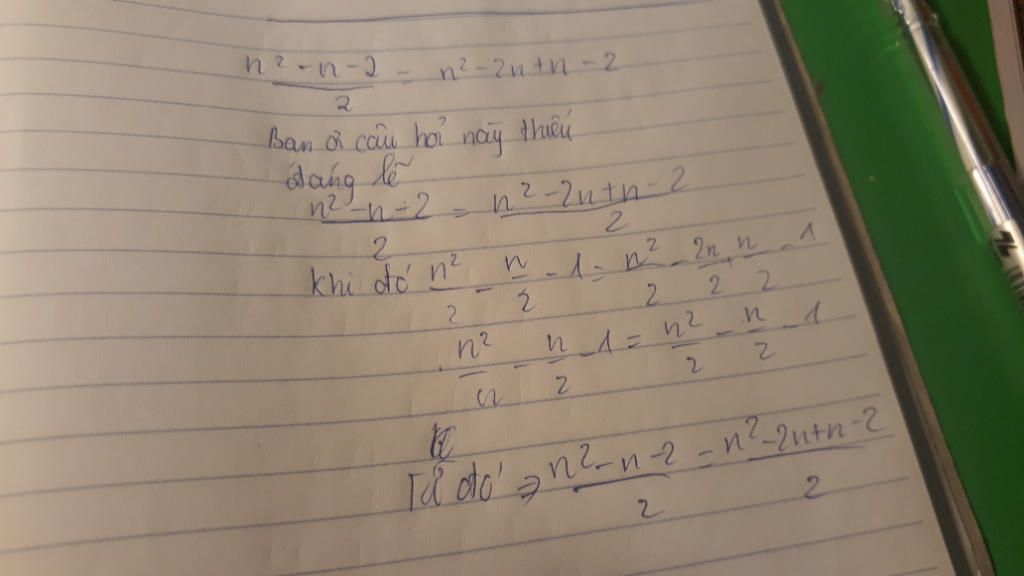 n² - n - 2 / 2 = n² - 2n + n - 2
Bạn ơi câu hỏi này thiếu
đáng lẽ
n² - n - 2 / 2 = n² - 2n + n - 2 / 2
Khi đó n²/2 - n/2 - 1 = n²/2 - 2n/2 + n/2 - 1
n²/2 - n/2 - 1 = n²/2 - n/2 - 1
Từ đó ⇒ n² - n - 2 / 2 = n² - 2n + n - 2 / 2